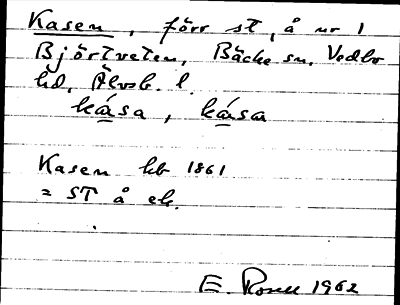 Kasen, förr st, å nr 1
Björtveten, Bäcke sn, Vedbo
hd, Älvsb. l.
kása, kása
Kasen hb 1861
= ST å ek.
E. Rosell 1962